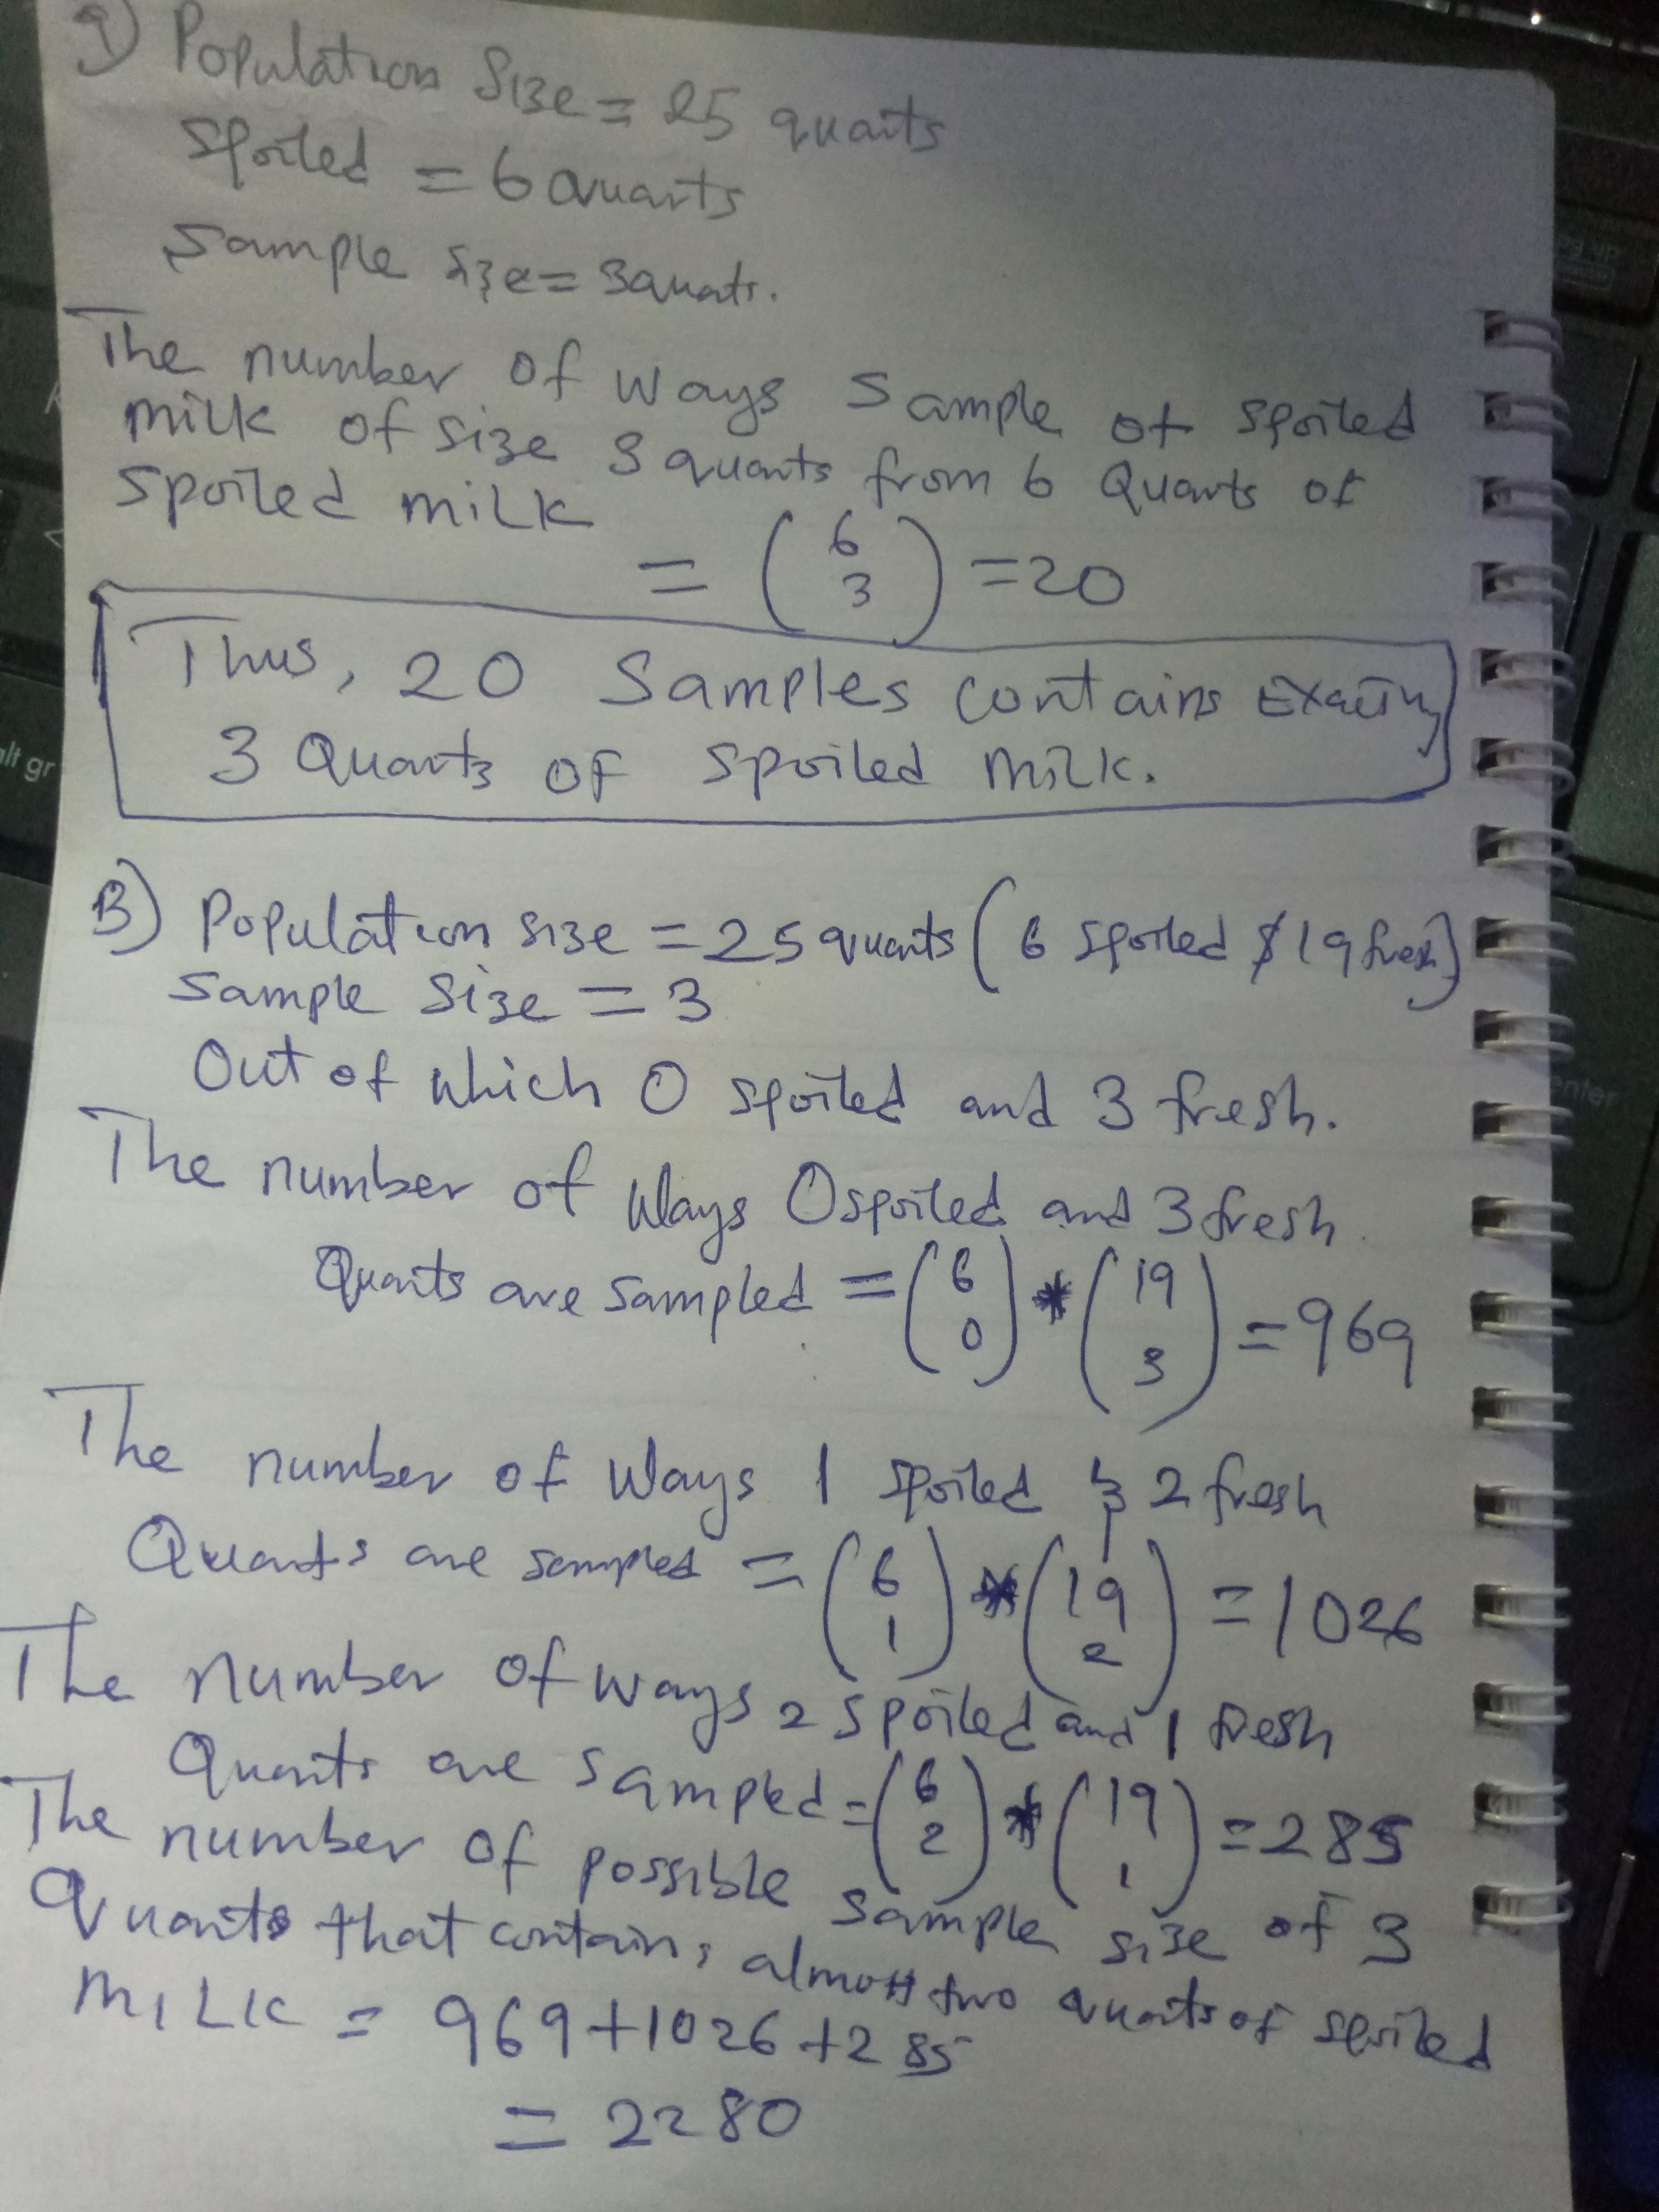 a) Population Size = 25 quarts
Spoiled = 6 Quarts
Sample size = 3 Quarts.
The number of ways Sample of spoiled
milk of size 3 quarts from 6 Quarts of
spoiled milk
= (6 3) = 20
Thus, 20 Samples contains Exactly
3 Quarts of spoiled milk.
B) Population size = 25 quarts (6 spoiled & 19 fresh)
Sample size = 3
Out of which 0 spoiled and 3 fresh.
The number of ways 0 spoiled and 3 fresh
Quarts are sampled = (6 0) * (19 3) = 969
The number of ways 1 spoiled & 2 fresh
Quarts are sampled = (6 1) * (19 2) = 1026
The number of ways 2 spoiled and 1 fresh
Quarts are sampled = (6 2) * (19 1) = 285
The number of possible sample size of 3
Quarts that contains almost two quarts of spoiled
MILK = 969 + 1026 + 285
= 2280
alt gr
enter